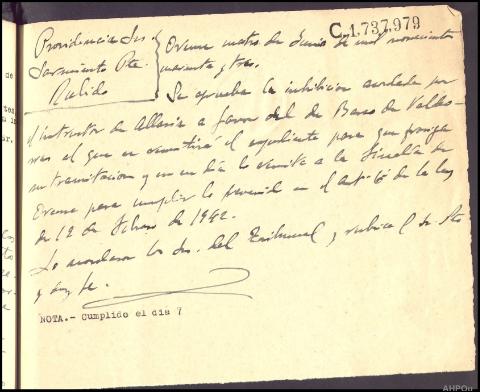 C.1.737.979
Providencia Srs.
Sarmiento Pte.
Pulido
Orense cuatro de Junio de mil novecientos
cuarenta y tres.
Se aprueba la inhibición acordada por
el instructor de Allariz a favor del de Barco de Valdeo-
rras al que se remitirá el expediente para que prosiga
su tramitacion y en su día lo remita a la
Orense para cumplir lo prevenido en el art. 6 de la ley
de 12 de Febrero de 1942.
Lo acordaron los Srs. del Tribunal y rubrica el Sr. Pte
y doy fe.
NOTA.- Cumplido el dia 7
AHPOu